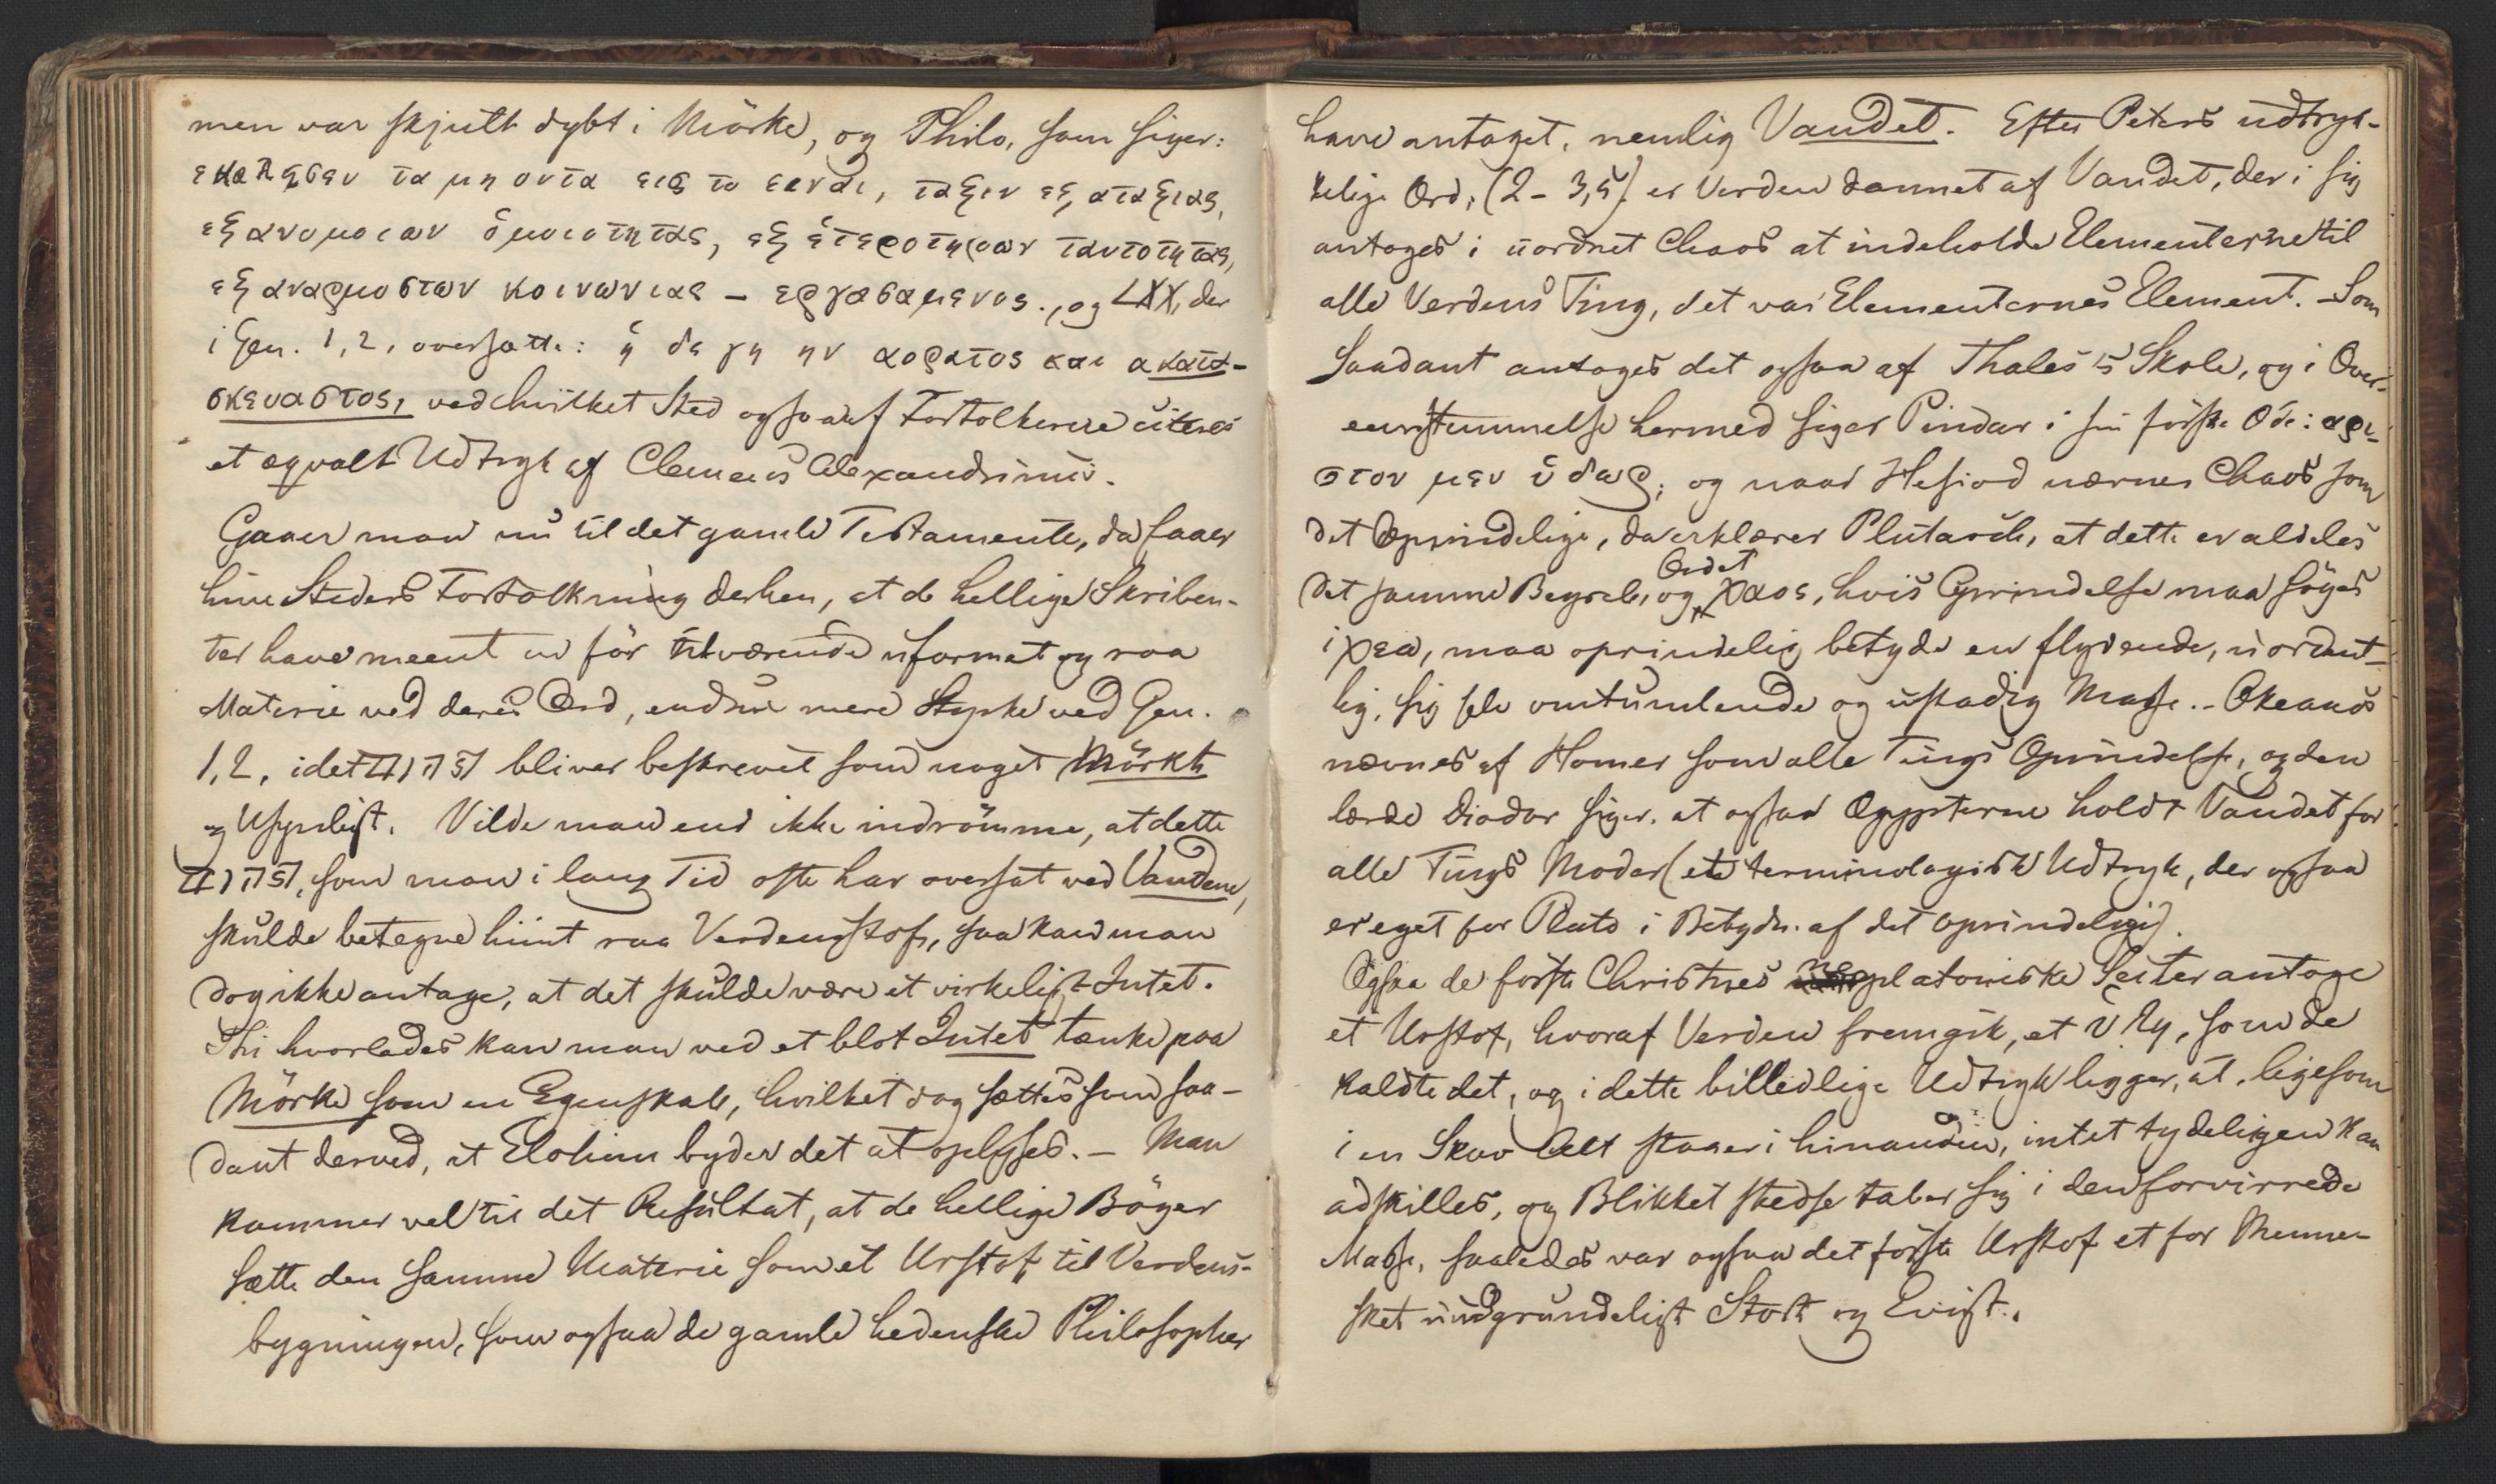 men var skjult dybt i Mörke, og Philo, som siger:
εκαλεσεν τα μη οντα εις το ειναι, ταξιν εξ αταξιας,
εξ ανομοιων ὁμοιοτητας, εξ ἑτεροτητων ταυτοτητας,
εξ αναρμοστων κοινωνιας – εργασαμενος., og LXX, der
i Gen. 1,2, oversætte: ἡ δε γη ην αορατος και ακατα-
σκευαστος, ved hvilket Sted ogsaa af Fortolkerne citeres
et æqvalt Udtryk af Clemens Alexandrinus.
Gaaer man nu til det gamle Testamente, da faaer
hine Steders Fortolkning derhen, at de hellige Skriben-
ter have meent en för tilværende uformet og raa
Materie ved deres Ord, endnu mere Styrke ved Gen.
1,2, idet תהום bliver beskrevet som noget Mörkt
og Usynligt. Vilde man end ikke indrömme, at dette
תהום, som man i lang Tid ofte har oversat ved Vandene,
skulde betegne hiint raa Verdensstof, saa kan man
dog ikke antage, at det skulde være et virkeligt Intet.
Thi hvorledes kan man ved et blot Intet tænke paa
Mörke som en Egenskab, hvilket dog sættes som saa-
dant derved, at Elohim byder det at oplyses. – Man
kommer vel til det Resultat, at de hellige Böger
sætte den samme Materie som et Urstof til Verdens-
bygningen, som ogsaa de gamle hedenske Philosopher
have antaget, nemlig Vandet. Efter Peters udtryk-
kelige Ord, (2 – 3,5) er Verden dannet af Vandet, der i sig
antages i uordnet Chaos at indeholde Elementerne til
alle Verdens Ting, det var Elementernes Element. – Som
Saadant antages det ogsaa af Thales's Skole, og i Over-
eensstemmelse hermed siger Pindar i sin förste Ode: αρι-
στον μεν ὑδωρ; og naar Hesiod nævner Chaos som
det Oprindelige, da erklærer Plutarch, at dette er aldeles
det samme Begreb, og Ordet χαος, hvis Oprindelse maa söges
i χεω, maa oprindelig betyde en flydende, uordent-
lig, sig selv omtumlende og ustadig Masse. – Okeanos
nævnes af Homer som alle Tings Oprindelse, og den
lærde Diodor siger, at ogsaa Ægypterne holdt Vandet for
alle Tings Moder (et terminologisk Udtryk, der ogsaa
er eget for Plato i Betydn. af det oprindelige).
Ogsaa de förste Christnes neoplatoniske Secter antoge
et Urstof, hvoraf Verden fremgik, et ὑλη, som de
kaldte det, og i dette billedlige Udtryk ligger, at, ligesom
i en Skov Alt staaer i hinanden, og intet tydeligen kan
adskilles, og Blikket stedse taber sig i den forvirrede
Masse, saaledes var ogsaa det förste Urstof et for Menne-
sket uudgrundeligt Stort og Evigt.